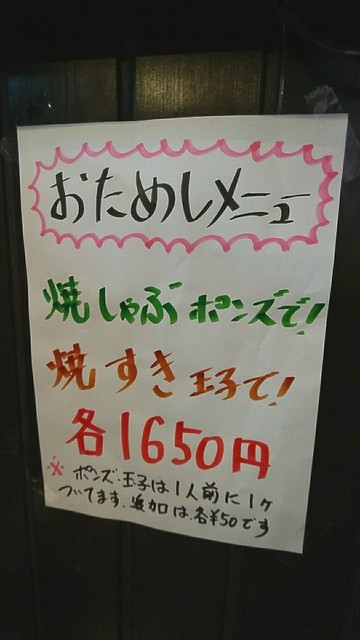 おためしメニュー
焼しゃぶ ポンズで!
焼すき玉子で!
各1650円
※ ポンズ・玉子は1人前に1ヶ
ついてます.追加は.各¥50です